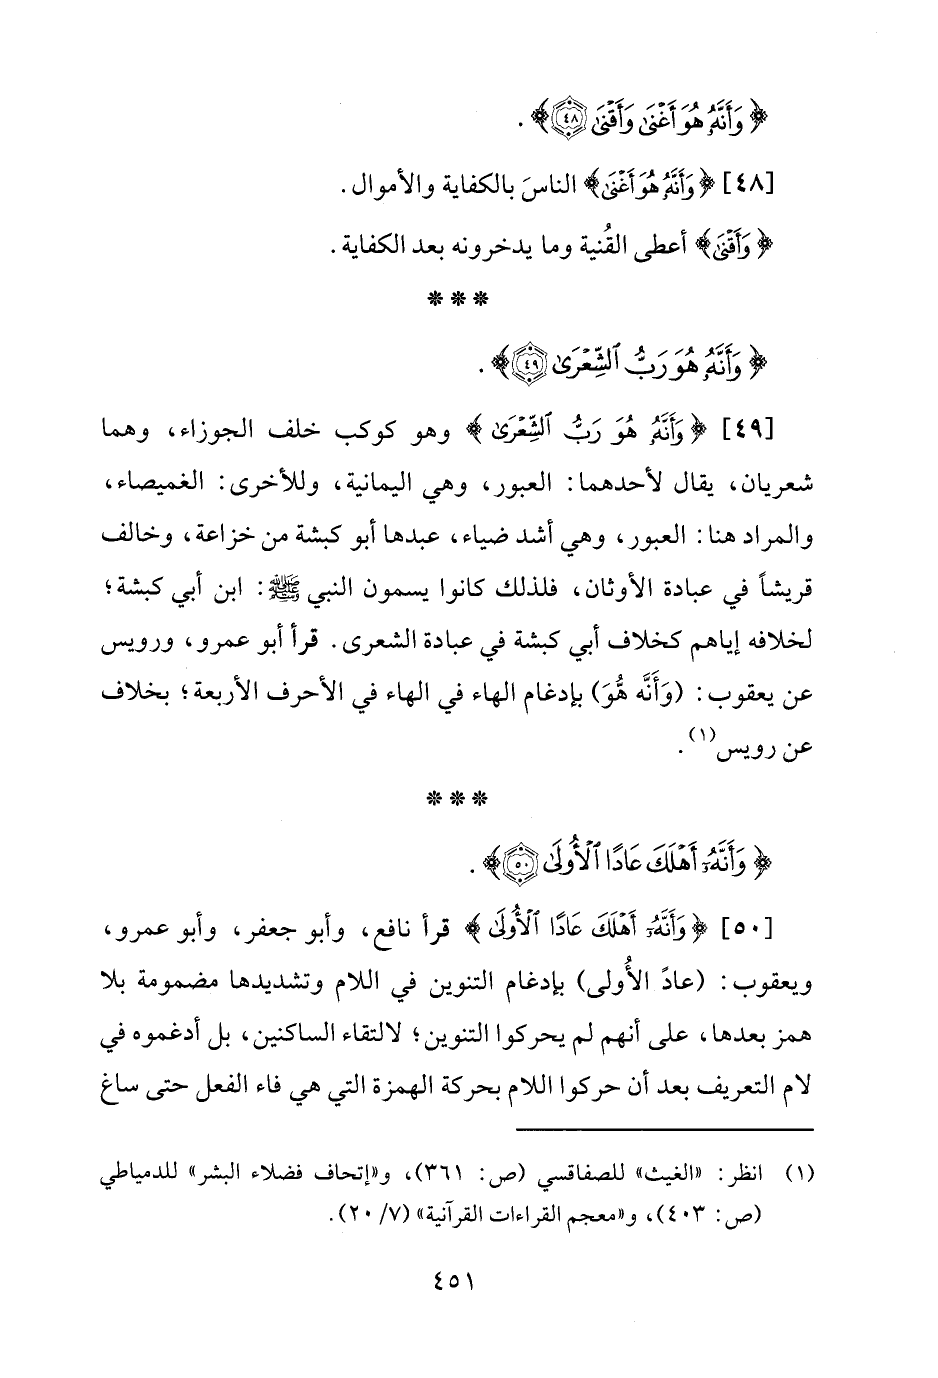 ﴿وَأَنَّهُ هُوَ أَغْنَىٰ وَأَقْنَىٰ ٤٨﴾ .
[٤٨] ﴿وَأَنَّهُ هُوَ أَغْنَىٰ﴾ الناسَ بالكفاية والأموال .
﴿وَأَقْنَىٰ﴾ أعطى القُنية وما يدخرونه بعد الكفاية .
* * *
﴿وَأَنَّهُ هُوَ رَبُّ ٱلشِّعْرَىٰ ٤٩﴾ .
[٤٩] ﴿وَأَنَّهُ هُوَ رَبُّ ٱلشِّعْرَىٰ﴾ وهو كوكب خلف الجوزاء، وهما
شعريان، يقال لأحدهما: العبور، وهي اليمانية، وللأخرى: الغميصاء،
والمراد هنا: العبور، وهي أشد ضياء، عبدها أبو كبشة من خزاعة، وخالف
قريشاً في عبادة الأوثان، فلذلك كانوا يسمون النبي ﷺ: ابن أبي كبشة؛
لخلافه إياهم كخلاف أبي كبشة في عبادة الشعرى. قرأ أبو عمرو، ورويس
عن يعقوب: (وَأَنَّه هُّوَ) بإدغام الهاء في الهاء في الأحرف الأربعة؛ بخلاف
عن رويس(١).
* * *
﴿وَأَنَّهُۥٓ أَهْلَكَ عَادًا ٱلْأُولَىٰ ٥٠﴾ .
[٥٠] ﴿وَأَنَّهُۥٓ أَهْلَكَ عَادًا ٱلْأُولَىٰ﴾ قرأ نافع، وأبو جعفر، وأبو عمرو،
ويعقوب: (عادً الأُولى) بإدغام التنوين في اللام وتشديدها مضمومة بلا
همز بعدها، على أنهم لم يحركوا التنوين؛ لالتقاء الساكنين، بل أدغموه في
لام التعريف بعد أن حركوا اللام بحركة الهمزة التي هي فاء الفعل حتى ساغ
(١) انظر: «الغيث» للصفاقسي (ص: ٣٦١)، و«إتحاف فضلاء البشر» للدمياطي
(ص: ٤٠٣)، و«معجم القراءات القرآنية» (٧/ ٢٠).
٤٥١